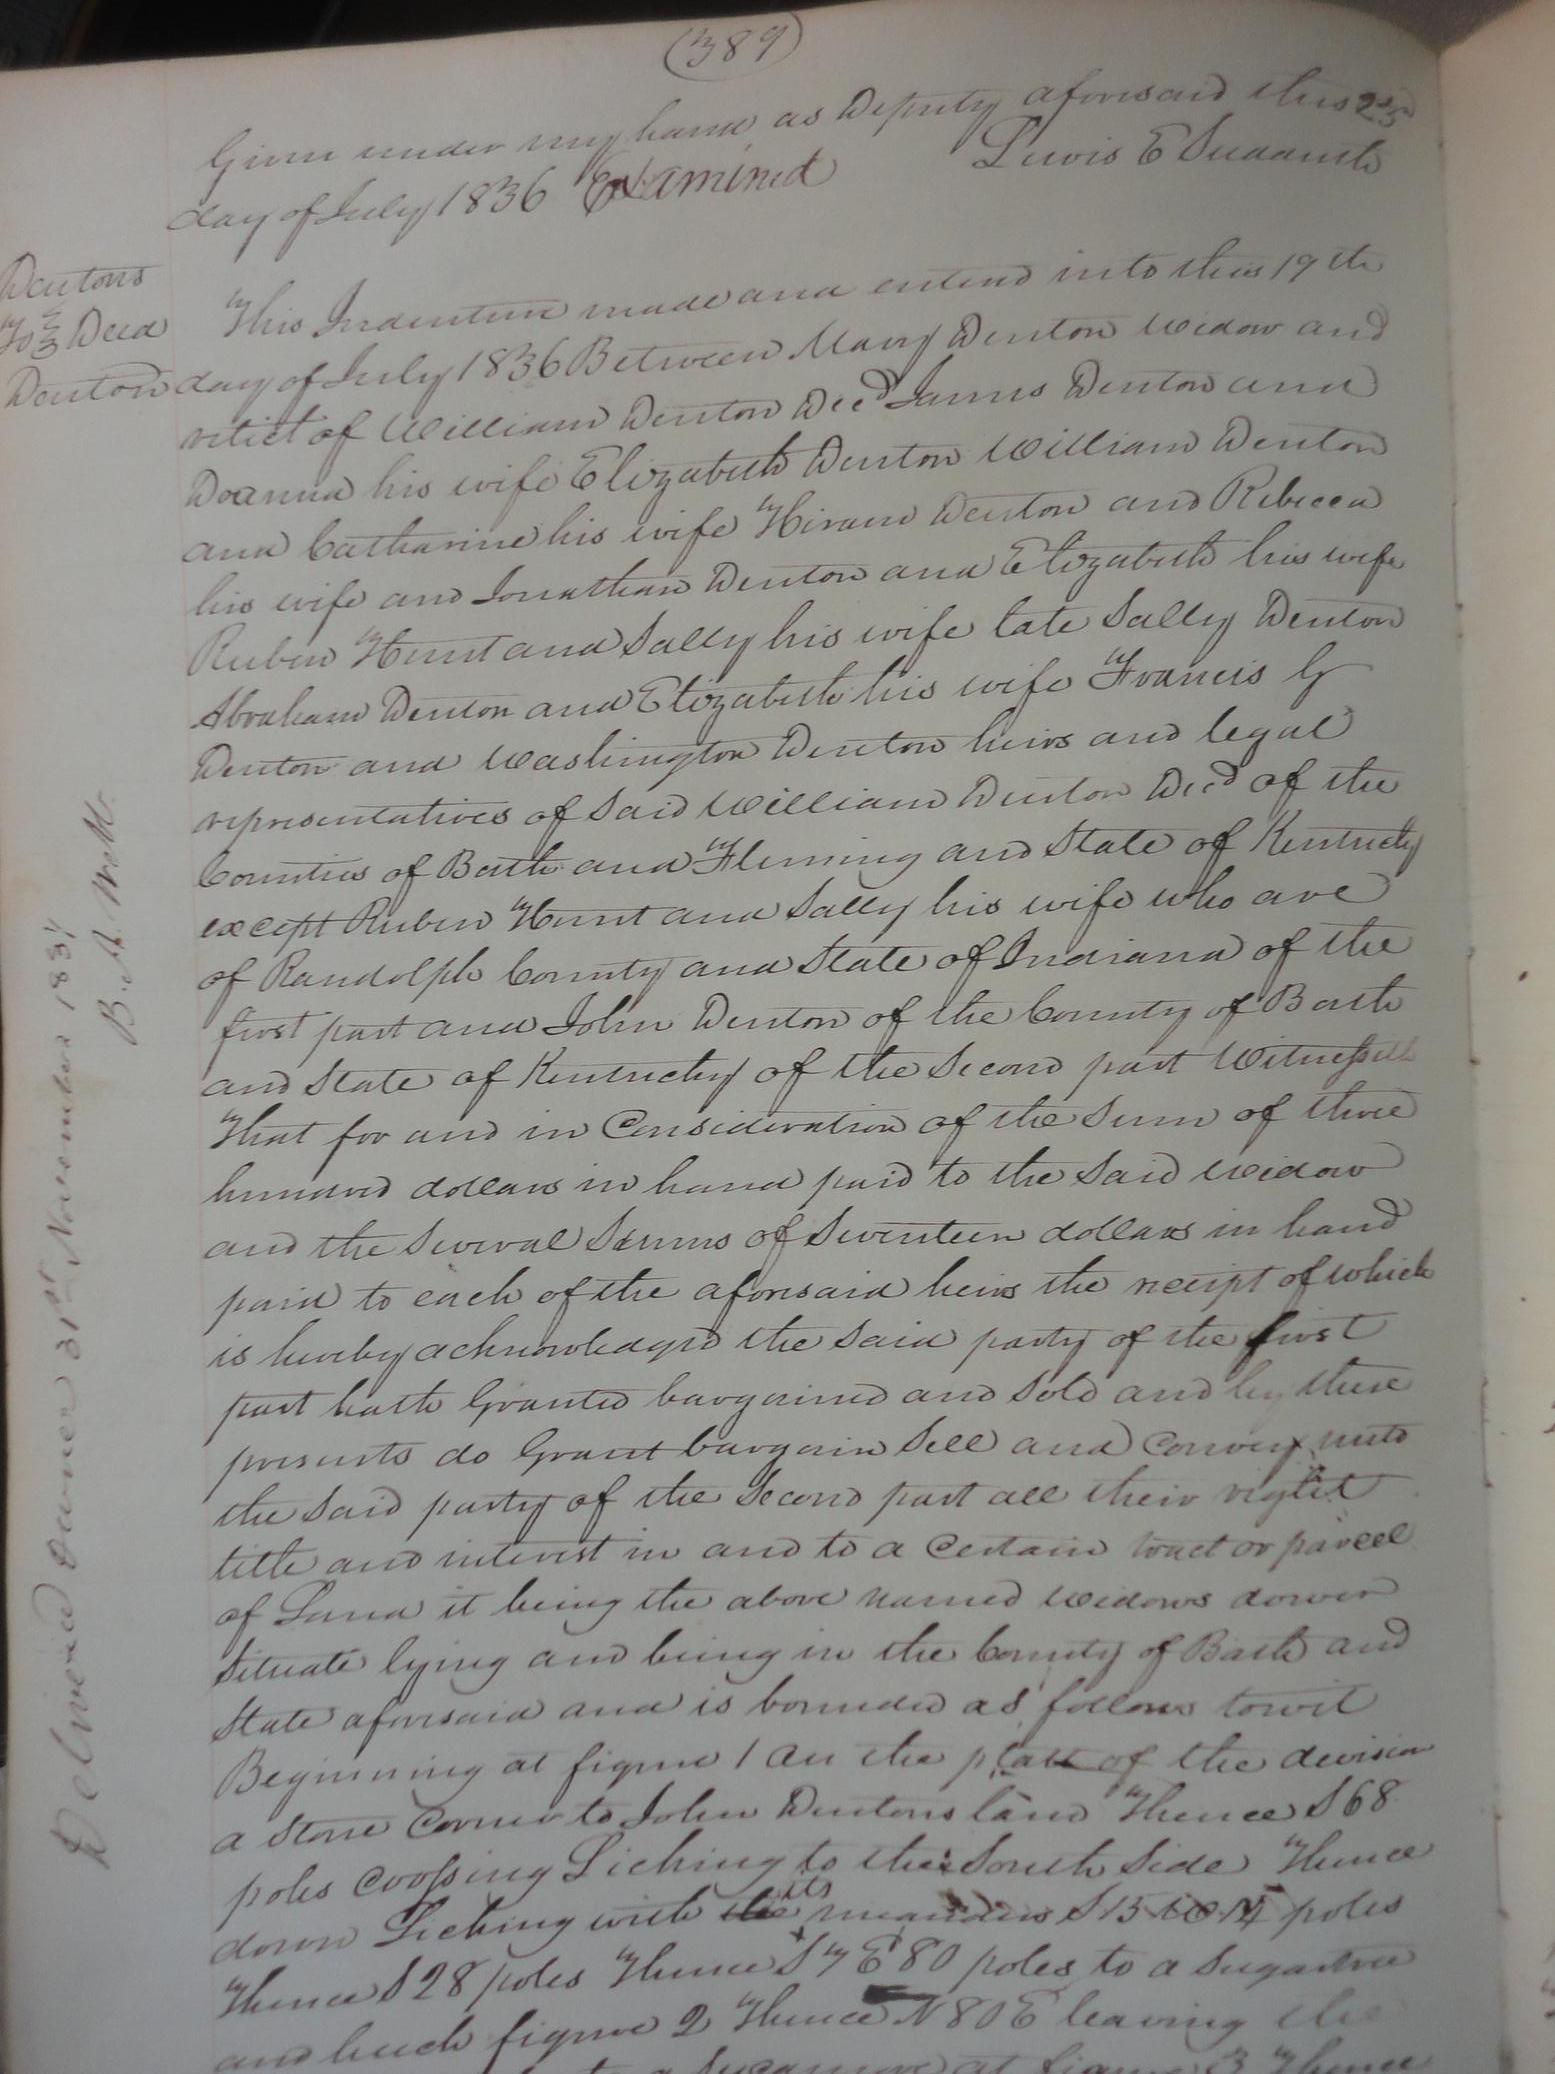 (389)
Given under my hand as Deputy aforesaid this 25
day of July 1836 Examined Lewis E Sudduth
Dentons
To } Deed
Denton
This Indenture made and entered into this 19th
day of July 1836 Between Mary Denton widow and
relict of William Denton Decd James Denton and
Doanna his wife Elizabeth Denton William Denton
and Catharine his wife Hiram Denton and Rebecca
his wife and Jonathan Denton and Elizabeth his wife
Ruben Hunt and Sally his wife late Sally Denton
Abraham Denton and Elizabeth his wife Francis G
Denton and Washington Denton heirs and legal
representatives of said William Denton Decd of the
Counties of Bath and Fleming and State of Kentucky
except Ruben Hunt and Sally his wife who are
of Randolph County and State of Indiana of the
first part and John Denton of the County of Bath
and State of Kentucky of the Second part Witnesseth
That for and in Consideration of the Sum of three
hundred dollars in hand paid to the Said Widow
and the Several Sums of Seventeen dollars in hand
paid to each of the aforesaid heirs the receipt of which
is hereby acknowledged the Said party of the first
part hath Granted bargained and Sold and by these
presents do Grant bargain Sell and Convey unto
the Said party of the Second part all their right
title and interest in and to a Certain tract or parcel
of Land it being the above named Widows dower
Situate lying and being in the County of Bath and
State aforesaid and is bounded as follows towit
Beginning at figure 1 on the platt of the division
a Stone Corner to John Dentons land Thence S 68
poles Crossing Licking to the South Side Thence
down Licking with the its meanders S 15 poles
Thence S 28 poles Thence S 7 E 80 poles to a Sugartree
and buch figure 2 Thence N 80 E leaving the
to a Sycamore at figure 3 Thence
Delivered Owner 31st November 1837